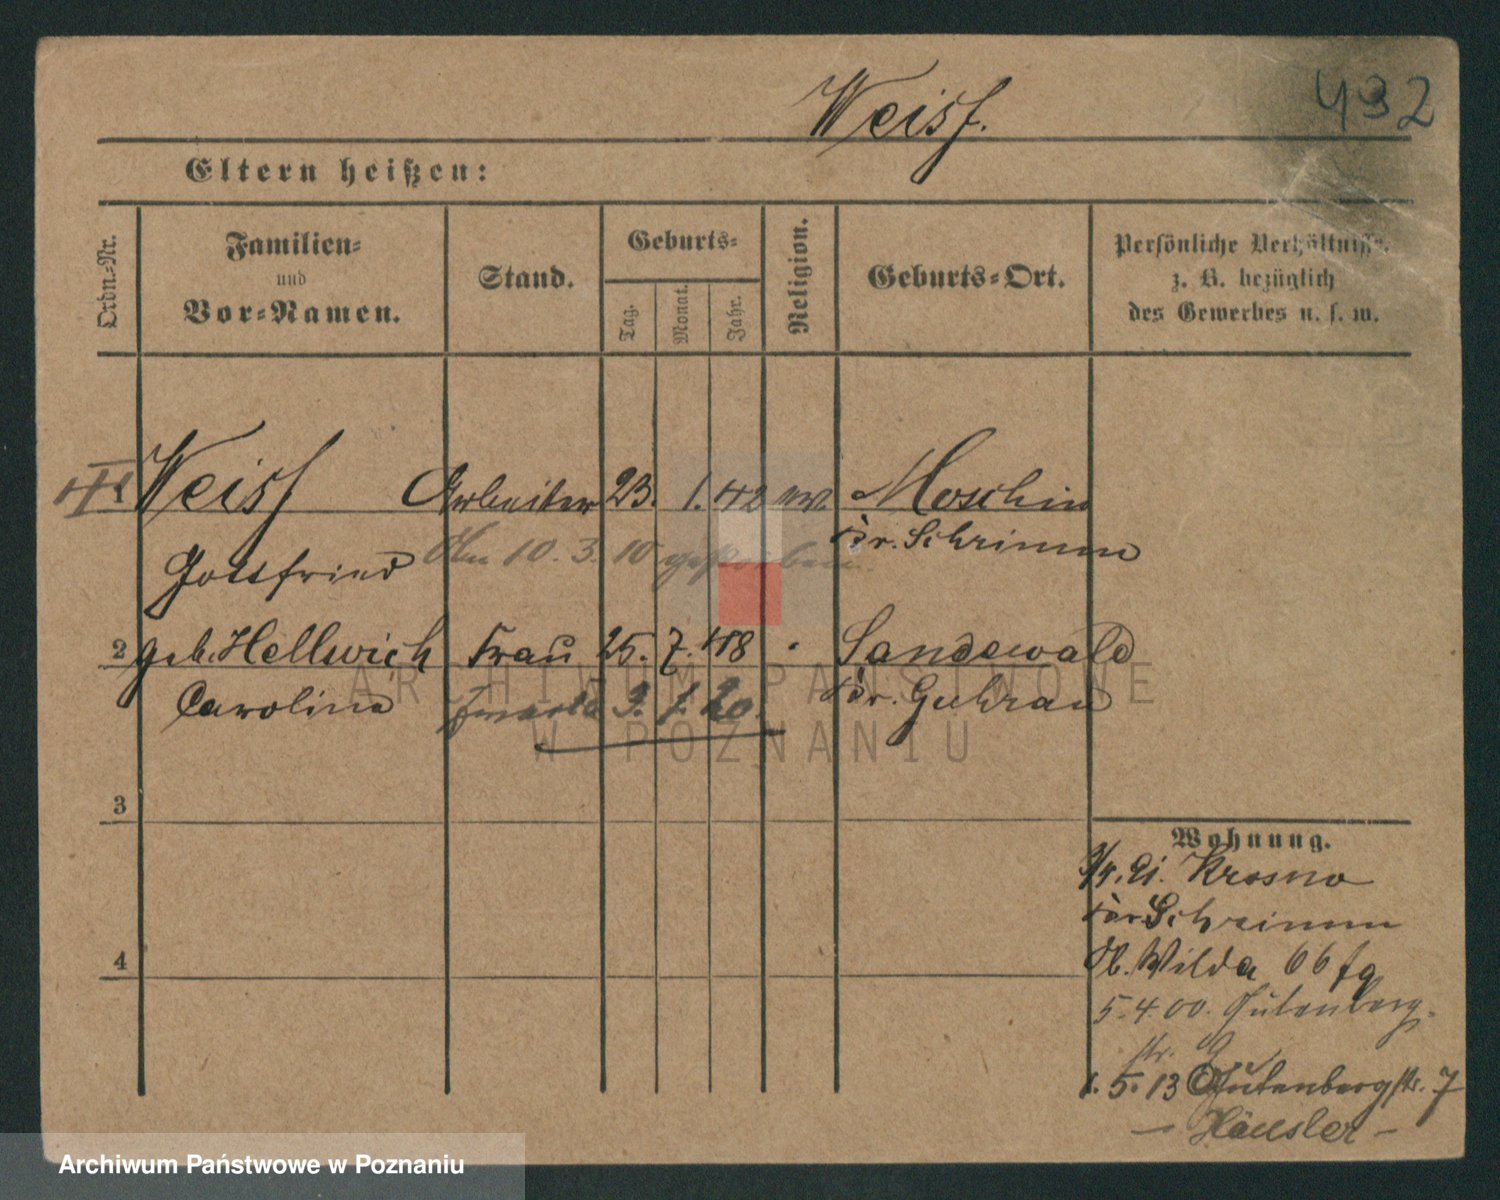 432
Weiss.
Eltern heißen:
Ordn.-Nr.
Familien-
und
Vor-Namen.
Stand.
Geburts-
Tag.
Monat.
Jahr.
Religion.
Geburts-Ort.
Persönliche Verhältnisse,
z. B. bezüglich
des Gewerbes u. s. w.
1 Weiss Arbeiter 23. 1. 42 ev. Moschin
Gottfried Am 10. 3. 10 gestorben. Kr. Schrimm
2 geb. Hellwich Frau 25. 7. 48 Sandewald
Carolina 3. 1. 20. Kr. Guhrau
3
4
Wohnung.
Krosno
Kr. Schrimm
Wilda 66
5. 4 00. Gutenberg-
str. 9
1. 5. 13 Gutenbergstr. 7
– Häusler –
ARCHIWUM PAŃSTWOWE
W POZNANIU
Archiwum Państwowe w Poznaniu